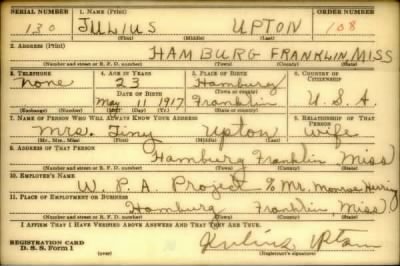 SERIAL NUMBER 1. NAME (Print) ORDER NUMBER
130 JULIUS UPTON 108
(First) (Middle) (Last)
2. ADDRESS (Print)
HAMBURG FRANKLIN MISS
(Number and street or R. F. D. number) (Town) (County) (State)
3. TELEPHONE 4. AGE IN YEARS 5. PLACE OF BIRTH 6. COUNTRY OF CITIZENSHIP
none 23 Hamburg
DATE OF BIRTH (Town or county)
May 11 1917 Franklin U.S.A.
(Exchange) (Number) (Mo.) (Day) (Yr.) (State or country)
7. NAME OF PERSON WHO WILL ALWAYS KNOW YOUR ADDRESS 8. RELATIONSHIP OF THAT PERSON
Mrs. Tiny Upton wife
(Mr., Mrs., Miss) (First) (Middle) (Last)
9. ADDRESS OF THAT PERSON
Hamburg Franklin Miss
(Number and street or R. F. D. number) (Town) (County) (State)
10. EMPLOYER'S NAME
W. P. A. Project % Mr. Monroe Herring
11. PLACE OF EMPLOYMENT OR BUSINESS
Hamburg Franklin Miss
(Number and street or R. F. D. number) (Town) (County) (State)
I AFFIRM THAT I HAVE VERIFIED ABOVE ANSWERS AND THAT THEY ARE TRUE.
REGISTRATION CARD
D. S. S. Form 1 Julius Upton
(Registrant's signature)